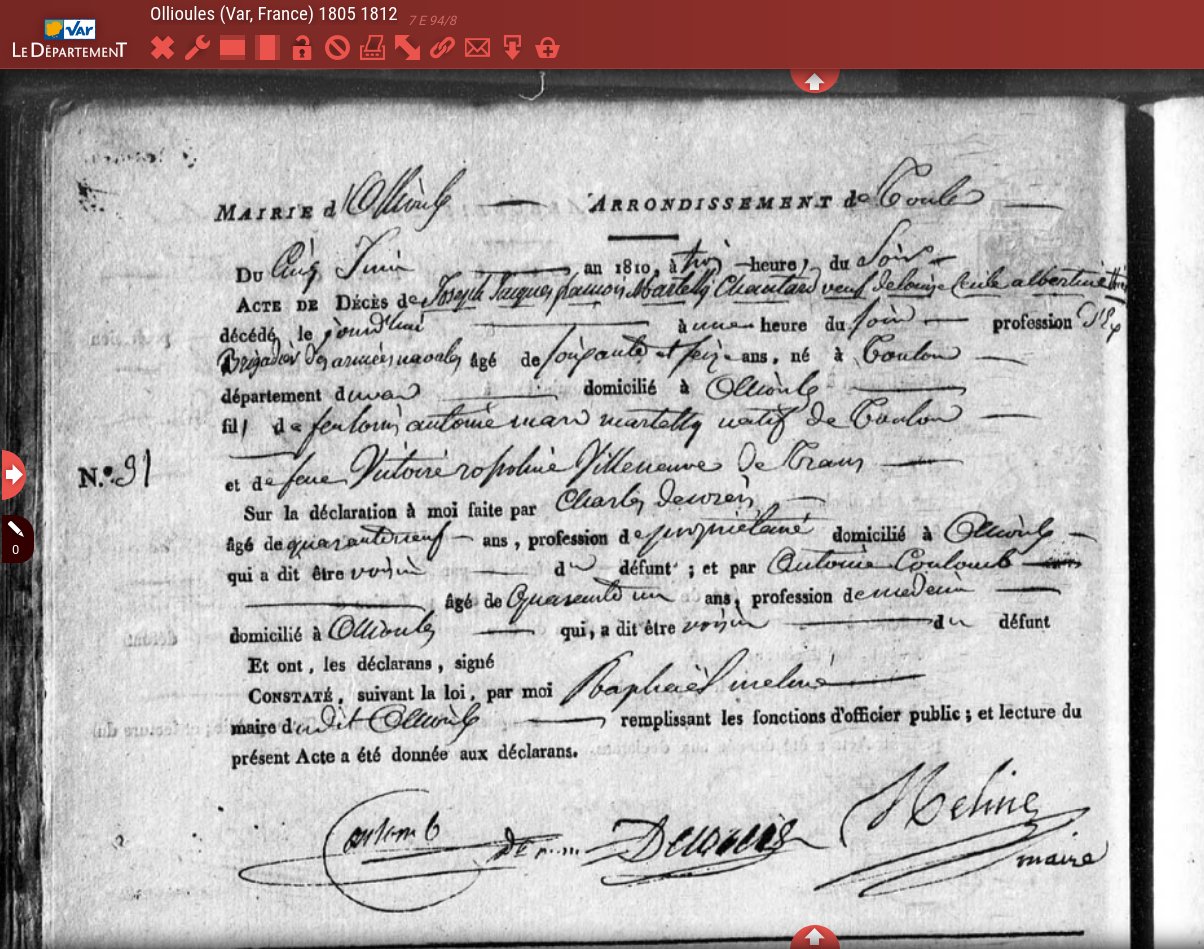 Ollioules (Var, France) 1805 1812 7 E 94/8
VAR
LE DÉPARTEMENT
MAIRIE d'Ollioules ARRONDISSEMENT de Toulon
Du Cinq Juin an 1810, à trois heures, du Soir
ACTE DE DÉCÈS de Joseph Jacques françois Martelly Chautard veuf de louise Cecile albertine
décédé, le jourd'hui à une heure du soir profession d'Ex
Brigadier des armées navales âgé de soixante et seize ans, né à Toulon
département du var domicilié à Ollioules
fils de feu louis antoine marc martelly natif de Toulon
N.º 91
et de feue Victoire rosoline Villeneuve De Trans
Sur la déclaration à moi faite par Charles
âgé de quaranteneuf ans, profession de propriétaire domicilié à Ollioules
qui a dit être voisin du défunt ; et par Antoine Coulomb
âgé de Quarante un ans, profession de medecin
domicilié à Ollioules qui, a dit être voisin du défunt
Et ont, les déclarans, signé
CONSTATÉ, suivant la loi, par moi Raphaël meline
maire du dit Ollioules remplissant les fonctions d'officier public ; et lecture du
présent Acte a été donnée aux déclarans.
Coulomb Meline
maire
0